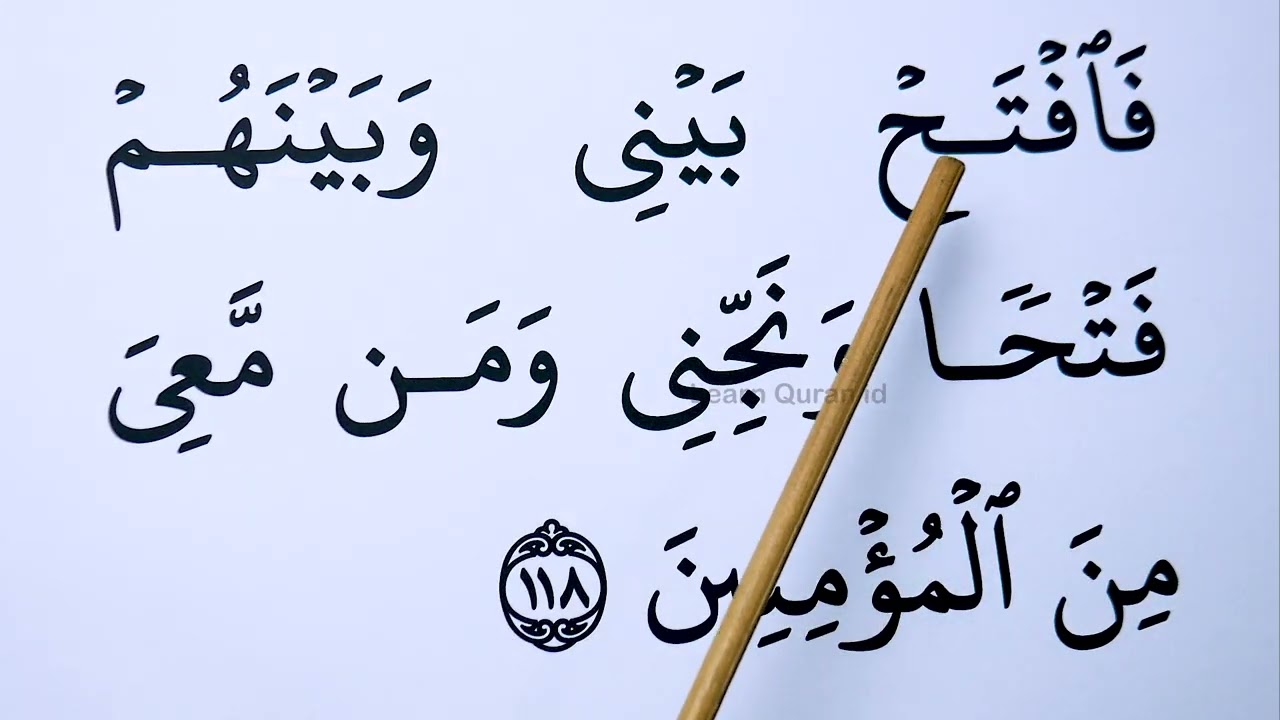 فَٱفۡتَحۡ بَيۡنِي وَبَيۡنَهُمۡ
فَتۡحَا وَنَجِّنِي وَمَن مَّعِيَ
Learn Quran.id
مِنَ ٱلۡمُؤۡمِنِينَ ١١٨